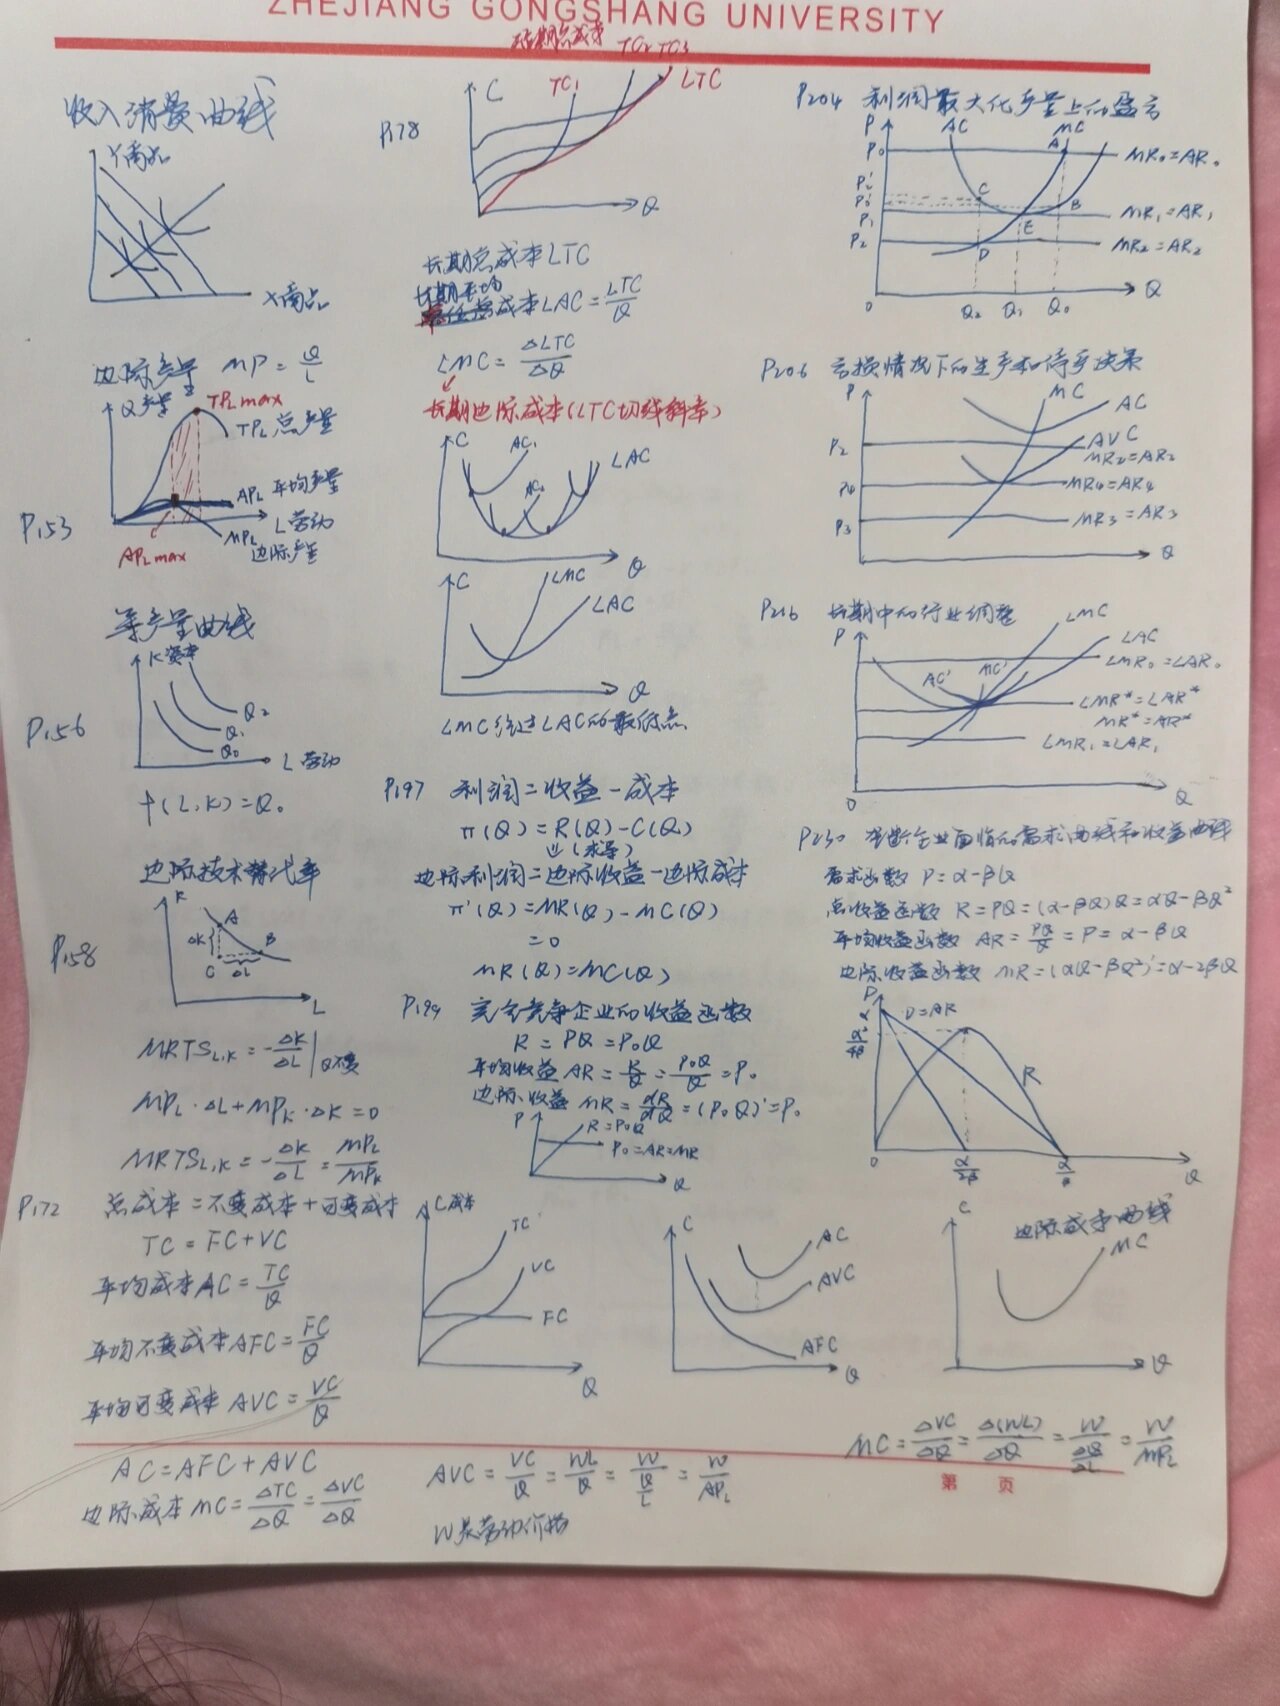 ZHEJIANG GONGSHANG UNIVERSITY
收入消费曲线
Y商品
X商品
边际产量 MP = Q/L
Q产量
TPL max
TPL 总产量
APL 平均产量
L 劳动
MPL
边际产量
APL max
P.153
等产量曲线
K 资本
Q2
Q1
Q0
L 劳动
P.156
f(L,K)=Q0
边际技术替代率
K
A
ΔK
B
C
ΔL
L
P.158
MRTSL,K = -ΔK/ΔL | Q不变
MPL·ΔL+MPK·ΔK=0
MRTSL,K = -ΔK/ΔL = MPL/MPK
P.172 总成本=不变成本+可变成本
TC=FC+VC
平均成本AC=TC/Q
平均不变成本AFC=FC/Q
平均可变成本 AVC=VC/Q
AC=AFC+AVC
边际成本MC=ΔTC/ΔQ=ΔVC/ΔQ
短期总成本
TC2 TC3
C
TC1
LTC
P.178
Q
长期总成本LTC
长期平均
成本LAC=LTC/Q
LMC=ΔLTC/ΔQ
长期边际成本(LTC切线斜率)
C
AC1
LAC
AC2
Q
C
LMC
LAC
Q
LMC经过LAC的最低点
P.197 利润=收益-成本
π(Q)=R(Q)-C(Q)
⇓(求导)
边际利润=边际收益-边际成本
π'(Q)=MR(Q)-MC(Q)
=0
MR(Q)=MC(Q)
P.199 完全竞争企业的收益函数
R=PQ=P0Q
平均收益 AR=R/Q=P0Q/Q=P0
边际收益 MR=dR/dQ=(P0Q)'=P0
P
R=P0Q
P0=AR=MR
Q
C成本
TC
VC
FC
Q
C
AC
AVC
AFC
Q
AVC=VC/Q=WL/Q=W/(Q/L)=W/APL
W是劳动价格
P204 利润最大化产量上的盈亏
P
AC
MC
A
P0
MR0=AR0
P2'
P0'
C
B
P1
MR1=AR1
E
P2
MR2=AR2
D
0
Q2
Q1
Q0
Q
P206 亏损情况下的生产和停产决策
P
MC
AC
P2
AVC
MR2=AR2
P4
MR4=AR4
P3
MR3=AR3
Q
P216 长期中的行业调整
P
LMC
LAC
LMR0=LAR0
AC'
MC'
LMR*=LAR*
MR*=AR*
LMR1=LAR1
0
Q
P230 垄断企业面临的需求曲线和收益曲线
需求函数 P=α-βQ
总收益函数 R=PQ=(α-βQ)Q=αQ-βQ²
平均收益函数 AR=PQ/Q=P=α-βQ
边际收益函数 MR=(αQ-βQ²)'=α-2βQ
P
α
D=AR
α²/4β
R
0
α/2β
α/β
Q
C
边际成本曲线
MC
Q
MC=ΔVC/ΔQ=Δ(WL)/ΔQ=W/(ΔQ/ΔL)=W/MPL
第 页